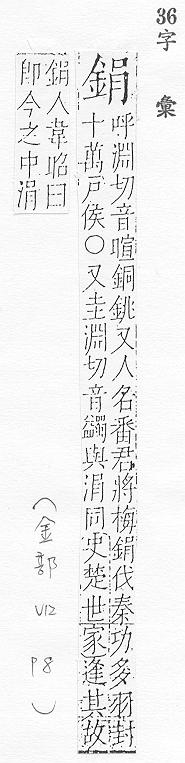 36
字彙
鋗呼淵切音暄銅銚又人名番君將梅鋗伐秦功多羽封
十萬戶侯○又圭淵切音蠲與涓同史楚世家逢其故
鋗人韋昭曰
卽今之中涓
(金部 V12 P8)